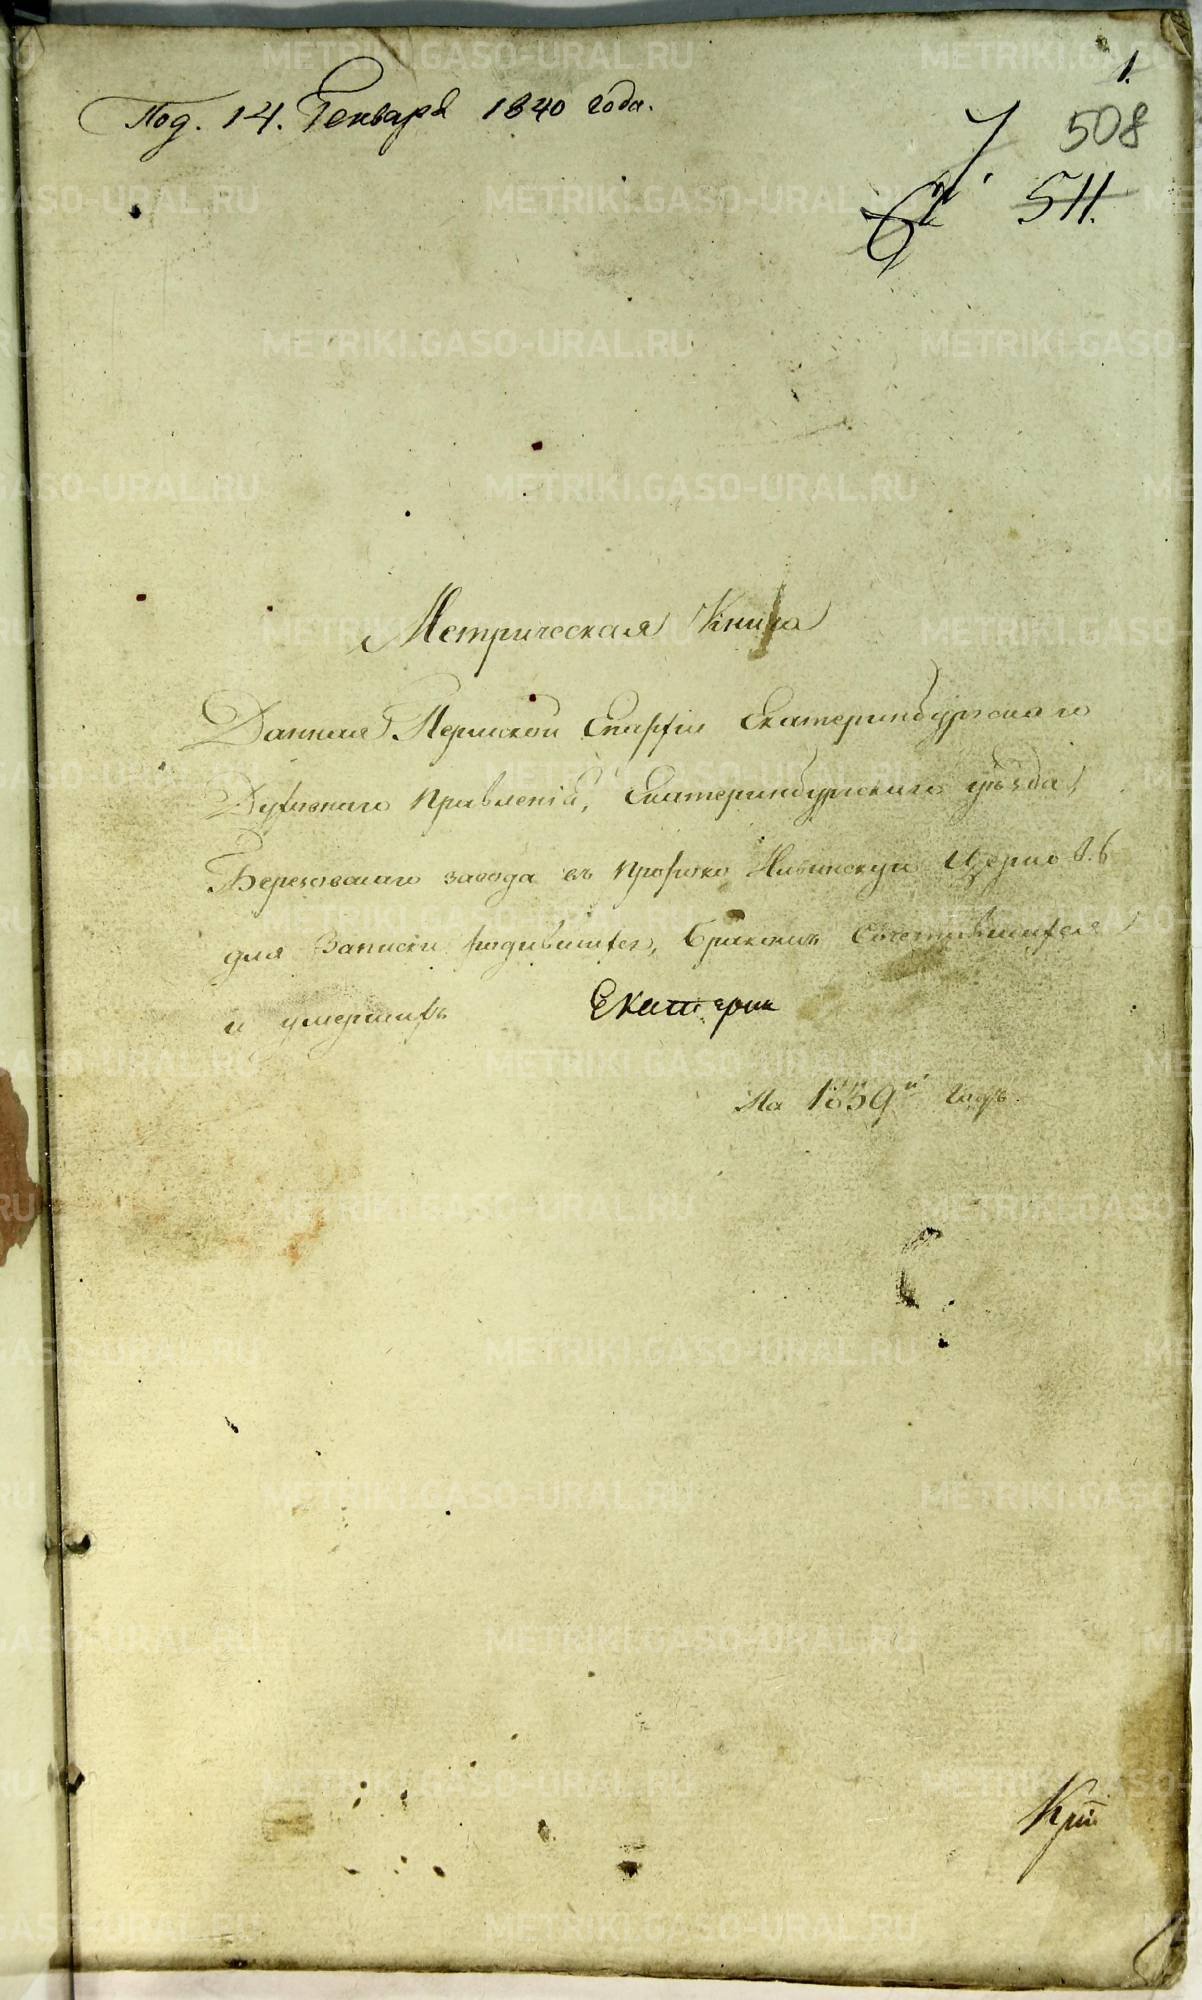 1.
Под. 14. Генваря 1840 года.
508
7
511.
Метрическая Книга
Данная Пермской Епархіи Екатеринбургскаго
Духовнаго Правленія, Екатеринбургскаго уѣзда,
Березовскаго завода въ Пророко Ильинскую Церковь
для Записки родившихся, бракомъ Сочетавшихся
и умершихъ
Екатерин
На 1839й годъ.
METRIKI.GASO-URAL.RU